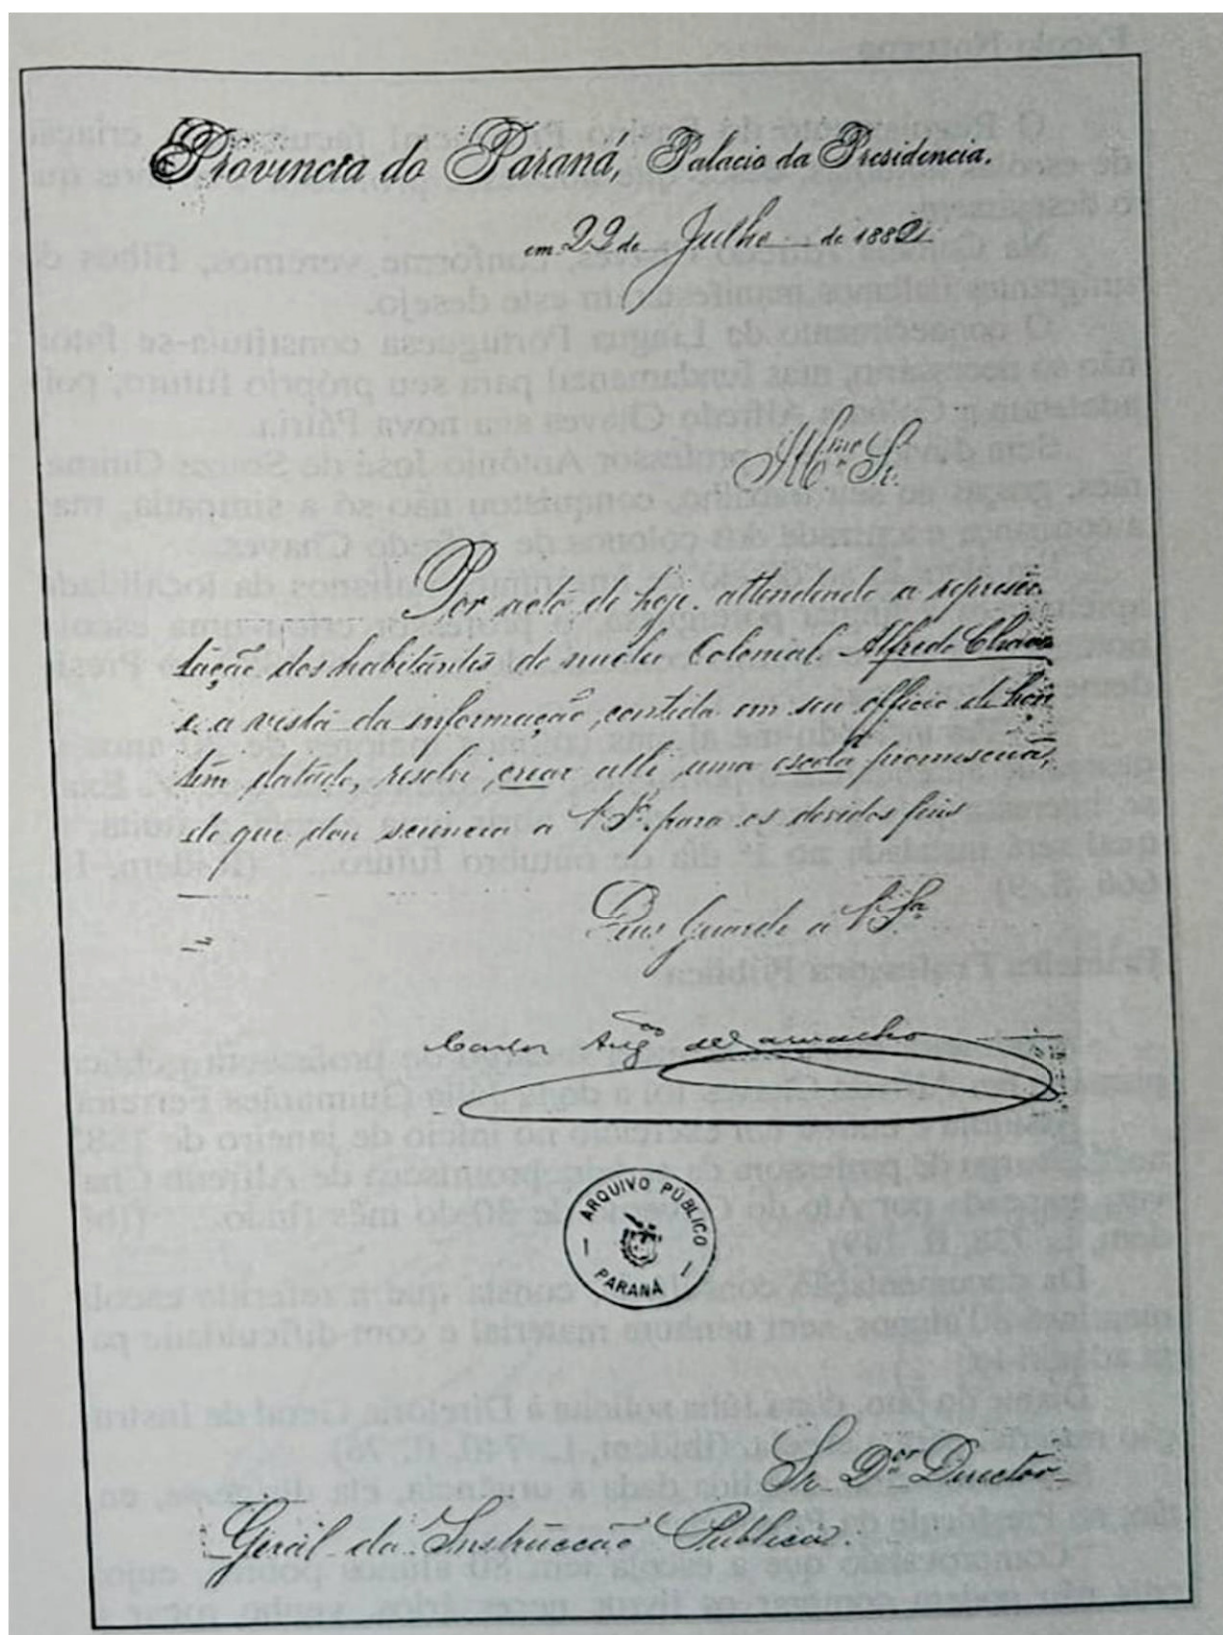 Provincia do Paraná, Palacio da Presidencia.
em 22 de Julho de 1882
Illmo Sr.
Por acto de hoje, attendendo a represen
tação dos habitantes do nucleo Colonial Alfredo Chaves
e a vista da informação contida em seu officio de hon
tem datado, resolvi crear alli uma escola promiscua,
do que dou sciencia a V. Sa. para os devidos fins
Deus Guarde a V. Sa.
Carlos Augto de Carvalho
ARQUIVO PÚBLICO
PARANÁ
Sr. Dor Director
Geral da Instrucção Publica.